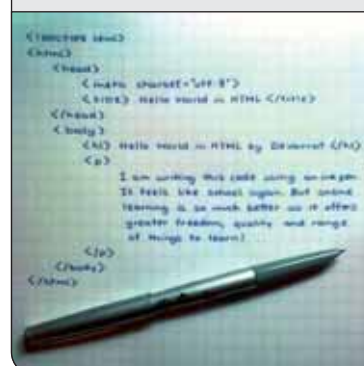 <!DOCTYPE html>
<html>
<head>
<meta charset="utf-8">
<title> Hello World in HTML </title>
</head>
<body>
<h1> Hello World in HTML by Devarrat </h1>
<p>
I am writing this code using an ink pen.
It feels like school again. But online
learning is so much better as it offers
greater freedom, quality and range
of things to learn!
</p>
</body>
</html>